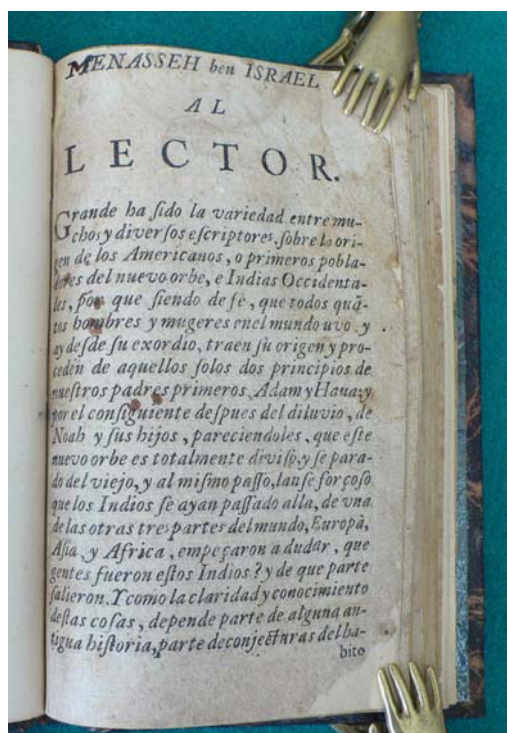 MENASSEH ben ISRAEL
AL
LECTOR.
Grande ha ſido la variedad entre mu-
chos y diverſos eſcriptores, ſobre la ori-
gen de los Americanos, o primeros pobla-
dores del nuevo orbe, e Indias Occidenta-
les, por que ſiendo de fe, que todos quã-
tos hombres y mugeres enel mundo uvo y
ay deſde ſu exordio, traen ſu origen y pro-
ceden de aquellos ſolos dos principios de
nueſtros padres primeros, Adam y Haua; y
por el conſiguiente deſpues del diluvio, de
Noah y ſus hijos, pareciendoles, que eſte
nuevo orbe es totalmente diviſo, y ſe para-
do del viejo, y al miſmo paſſo, ſauſe forçoſo
que los Indios ſe ayan paſſado alla, de vna
de las otras tres partes del mundo, Europà,
Aſia, y Africa, empeçaron a dudar, que
gentes fueron eſtos Indios? y de que parte
ſalieron. Y como la claridad y conocimiento
deſtas coſas, depende parte de alguna an-
tigua hiſtoria, parte deconjecturas del ha-
bito